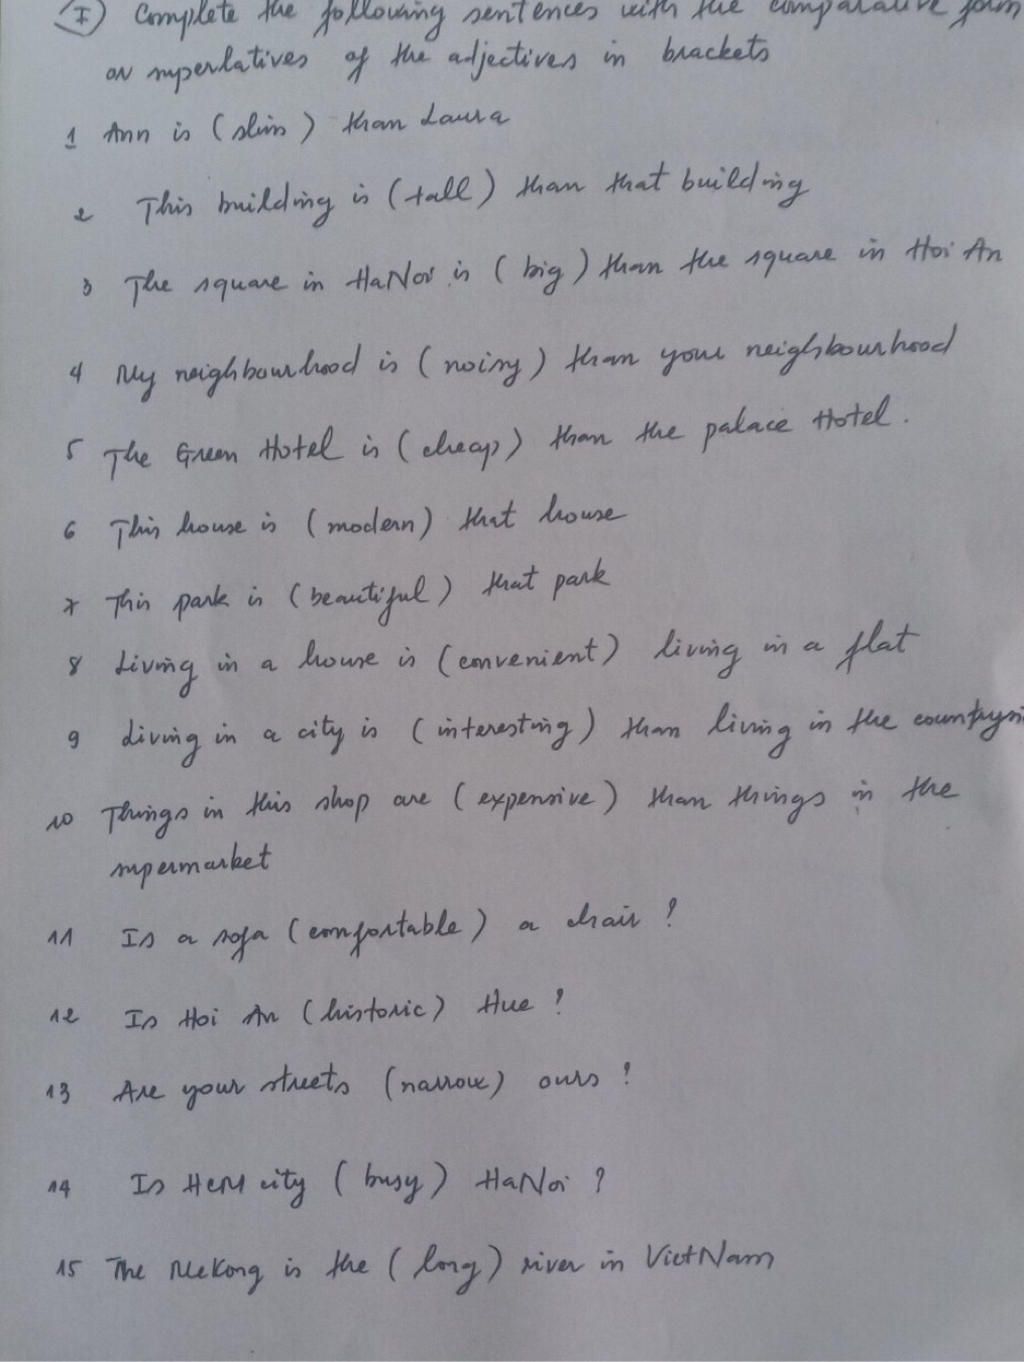 I) Complete the following sentences with the comparative form
or superlatives of the adjectives in brackets
1 Ann is (slim) than Laura
2 This building is (tall) than that building
3 The square in HaNoi is (big) than the square in Hoi An
4 My neighbourhood is (noisy) than your neighbourhood
5 The Green Hotel is (cheap) than the palace Hotel.
6 This house is (modern) that house
7 This park is (beautiful) that park
8 Living in a house is (convenient) living in a flat
9 Living in a city is (interesting) than living in the countrysi
10 Things in this shop are (expensive) than things in the
supermarket
11 Is a sofa (comfortable) a chair ?
12 Is Hoi An (historic) Hue ?
13 Are your streets (narrow) ours ?
14 Is HCM city (busy) HaNoi ?
15 The MeKong is the (long) river in VietNam